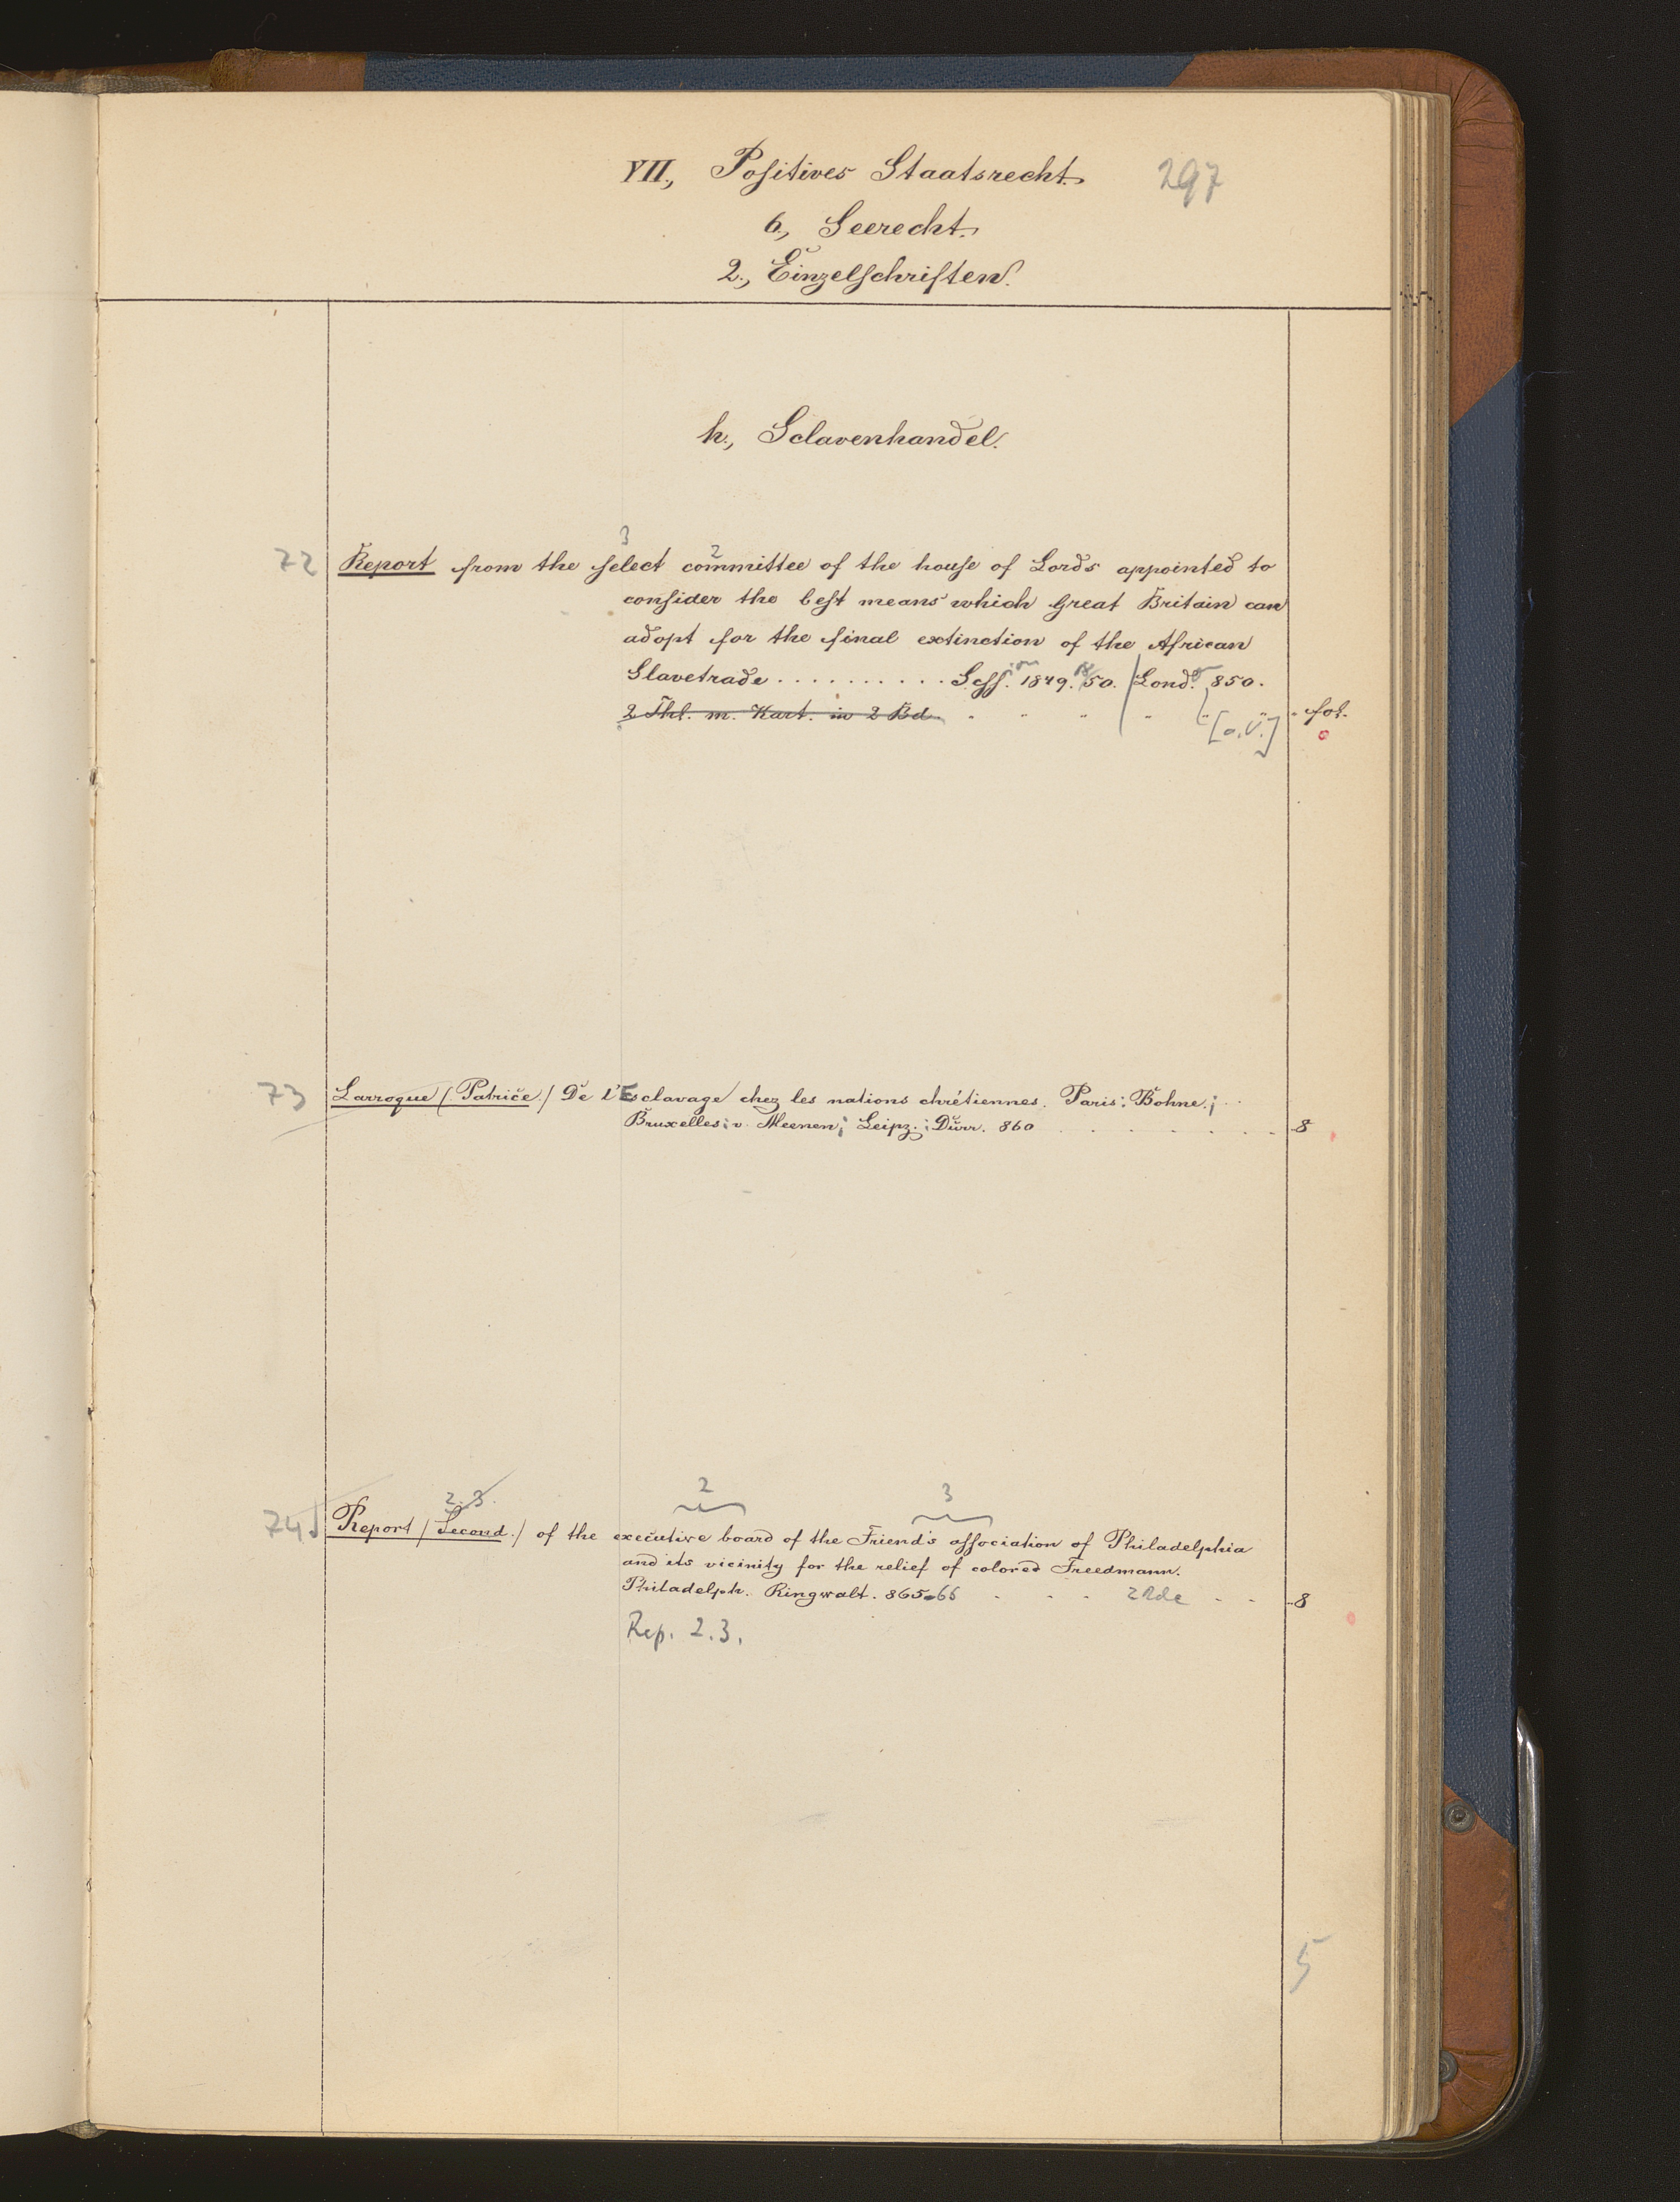 VII., Positives Staatsrecht. 297
6., Seerecht.
2., Einzelschriften.
h., Sclavenhandel.
3 2
72 Report from the select committee of the house of Lords appointed to
consider the best means which Great Britain can
adopt for the final extinction of the African
Slavetrade . . . . . . . . . . Sess. 1849. 50. Lond. 850.
2 Thl. m. Kart. in 2 Bd. fol.
[o.V.]
73 Larroque (Patrice.) De l'Esclavage chez les nations chrétiennes. Paris: Bohne;
Bruxelles: v. Meenen; Leipz.: Dürr. 860 . . . . . . . . . 8
2.3. 2 3
74 Report (Second.) of the executive board of the Friend's association of Philadelphia
and its vicinity for the relief of colored Freedmann.
Philadelph. Ringwalt. 865-66 . . . 2 Bde . . 8
Rep. 2.3.
5